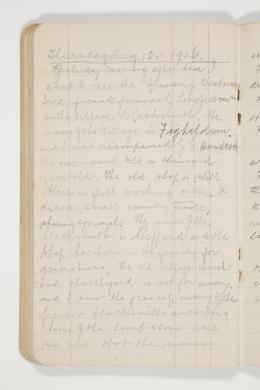 Thursday Aug 10. 1916.
Yesterday evening after tea I
went to see the "Spreading Chestnut
Tree" made famous by Longfellow
in the Village Blacksmith. The
name of the Village is Figheldean.
and I was accompanied by G.
The tree is said to be a thousand
years old. The old shop is still
there in full working order. It
does a small country trade,
shoeing &
The name of the
blacksmith is and the
shop has been in the family for
generations. The old village church
and churchyard is not far away.
and I saw the graves of many of the
present blacksmiths ancestors,
Some of the tomb stones were
so old that the names